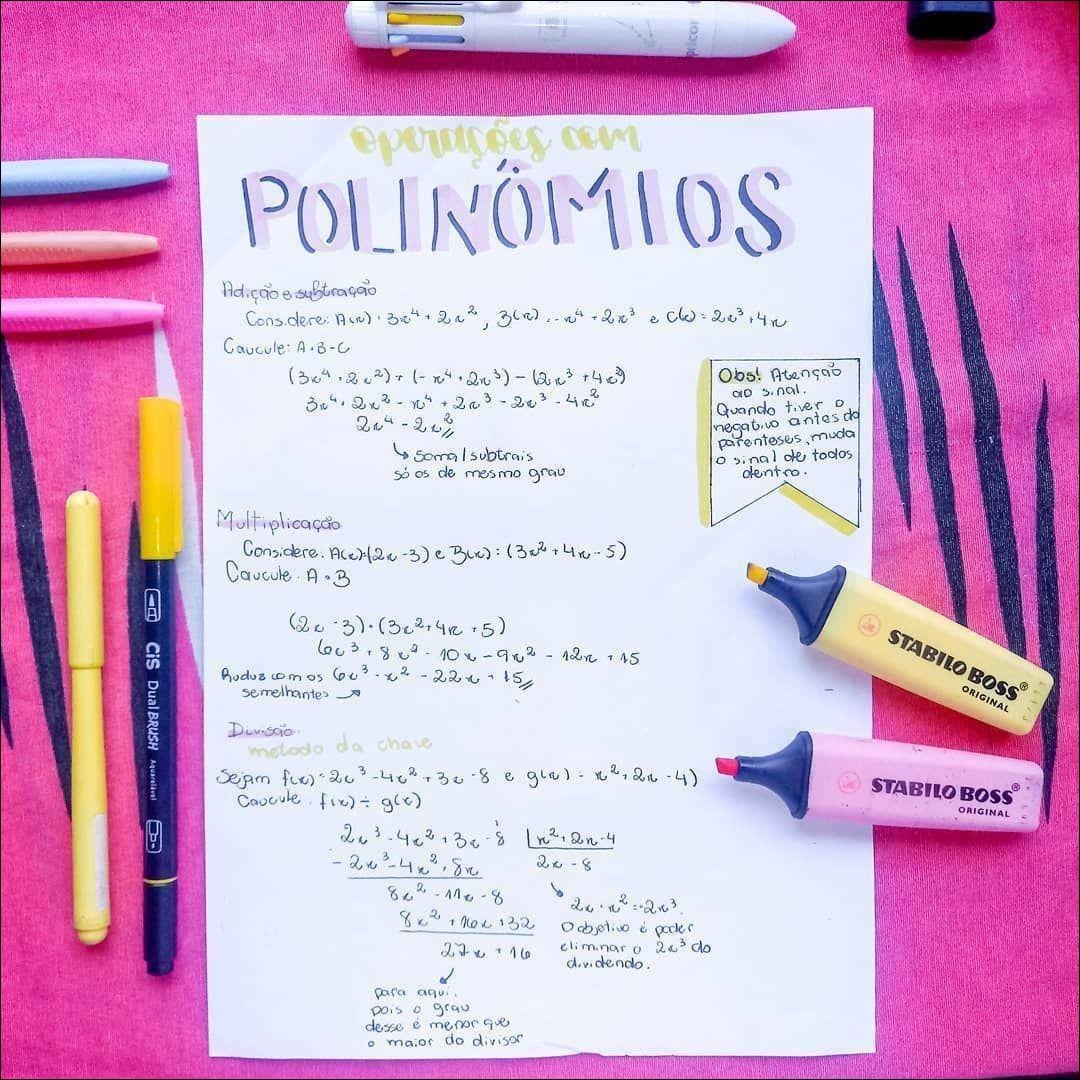 operações com
POLINÔMIOS
Adição e subtração
Considere: A(x) = 3x⁴ + 2x², B(x) = -x⁴ + 2x³ e C(x) = 2x³ + 4x
Caucule: A+B-C
(3x⁴ + 2x²) + (-x⁴ + 2x³) - (2x³ + 4x²)
3x⁴ + 2x² - x⁴ + 2x³ - 2x³ - 4x²
2x⁴ - 2x²//
↳ soma/subtrais
só os de mesmo grau
Obs! Atenção
ao sinal.
Quando tiver o
negativo antes do
parenteses, muda
o sinal de todos
dentro.
Multiplicação
Considere: A(x)=(2x - 3) e B(x) = (3x² + 4x - 5)
Caucule: A • B
(2x - 3) • (3x² + 4x + 5)
6x³ + 8x² - 10x - 9x² - 12x + 15
com os 6x³ - x² - 22x + 15//
semelhantes →
Divisão
metodo da chave
Sejam f(x) = 2x³ - 4x² + 3x - 8 e g(x) = x² + 2x - 4)
Caucule: f(x) ÷ g(x)
2x³ - 4x² + 3x - 8 |x² + 2x - 4
- 2x³ - 4x² + 8x 2x - 8
8x² - 11x - 8
8x² + 16x + 32
27x + 16
2x • x² = -2x³.
O objetivo é poder
eliminar o 2x³ do
dividendo.
para aqui,
pois o grau
desse é menor que
o maior do divisor
CiS Dual BRUSH Aquarelável
STABILO BOSS®
ORIGINAL
STABILO BOSS®
ORIGINAL